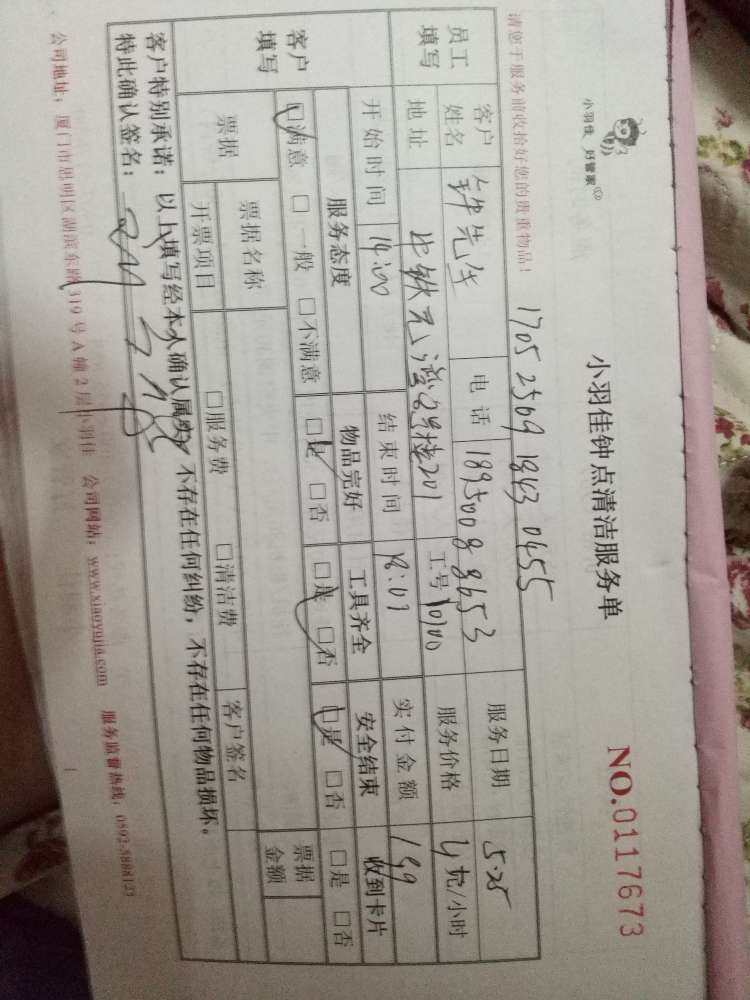 小羽佳 好管家
小羽佳钟点清洁服务单
NO.0117673
请您于服务前收拾好您的贵重物品！
1705 2569 1843 0455
员工填写
客户姓名 先生 电话 18950088653 服务日期 5.25
地址 中铁元湾 号楼201 工号 服务价格 元/小时
开始时间 14:00 结束时间 18:01 实付金额 199
客户填写
服务态度 物品完好 工具齐全 安全结束 收到卡片
☑满意 □一般 □不满意 ☑是 □否 ☑是 □否 ☑是 □否 □是 □否
票据 票据名称 票据金额
开票项目 □服务费 □清洁费 客户签名
客户特别承诺：以上填写经本人确认属实，不存在任何纠纷，不存在任何物品损坏。
特此确认签名：
公司地址：厦门市思明区湖滨东路319号A幢2层小羽佳 公司网站：www.xiaoyujia.com 服务监督热线：0592-5888123